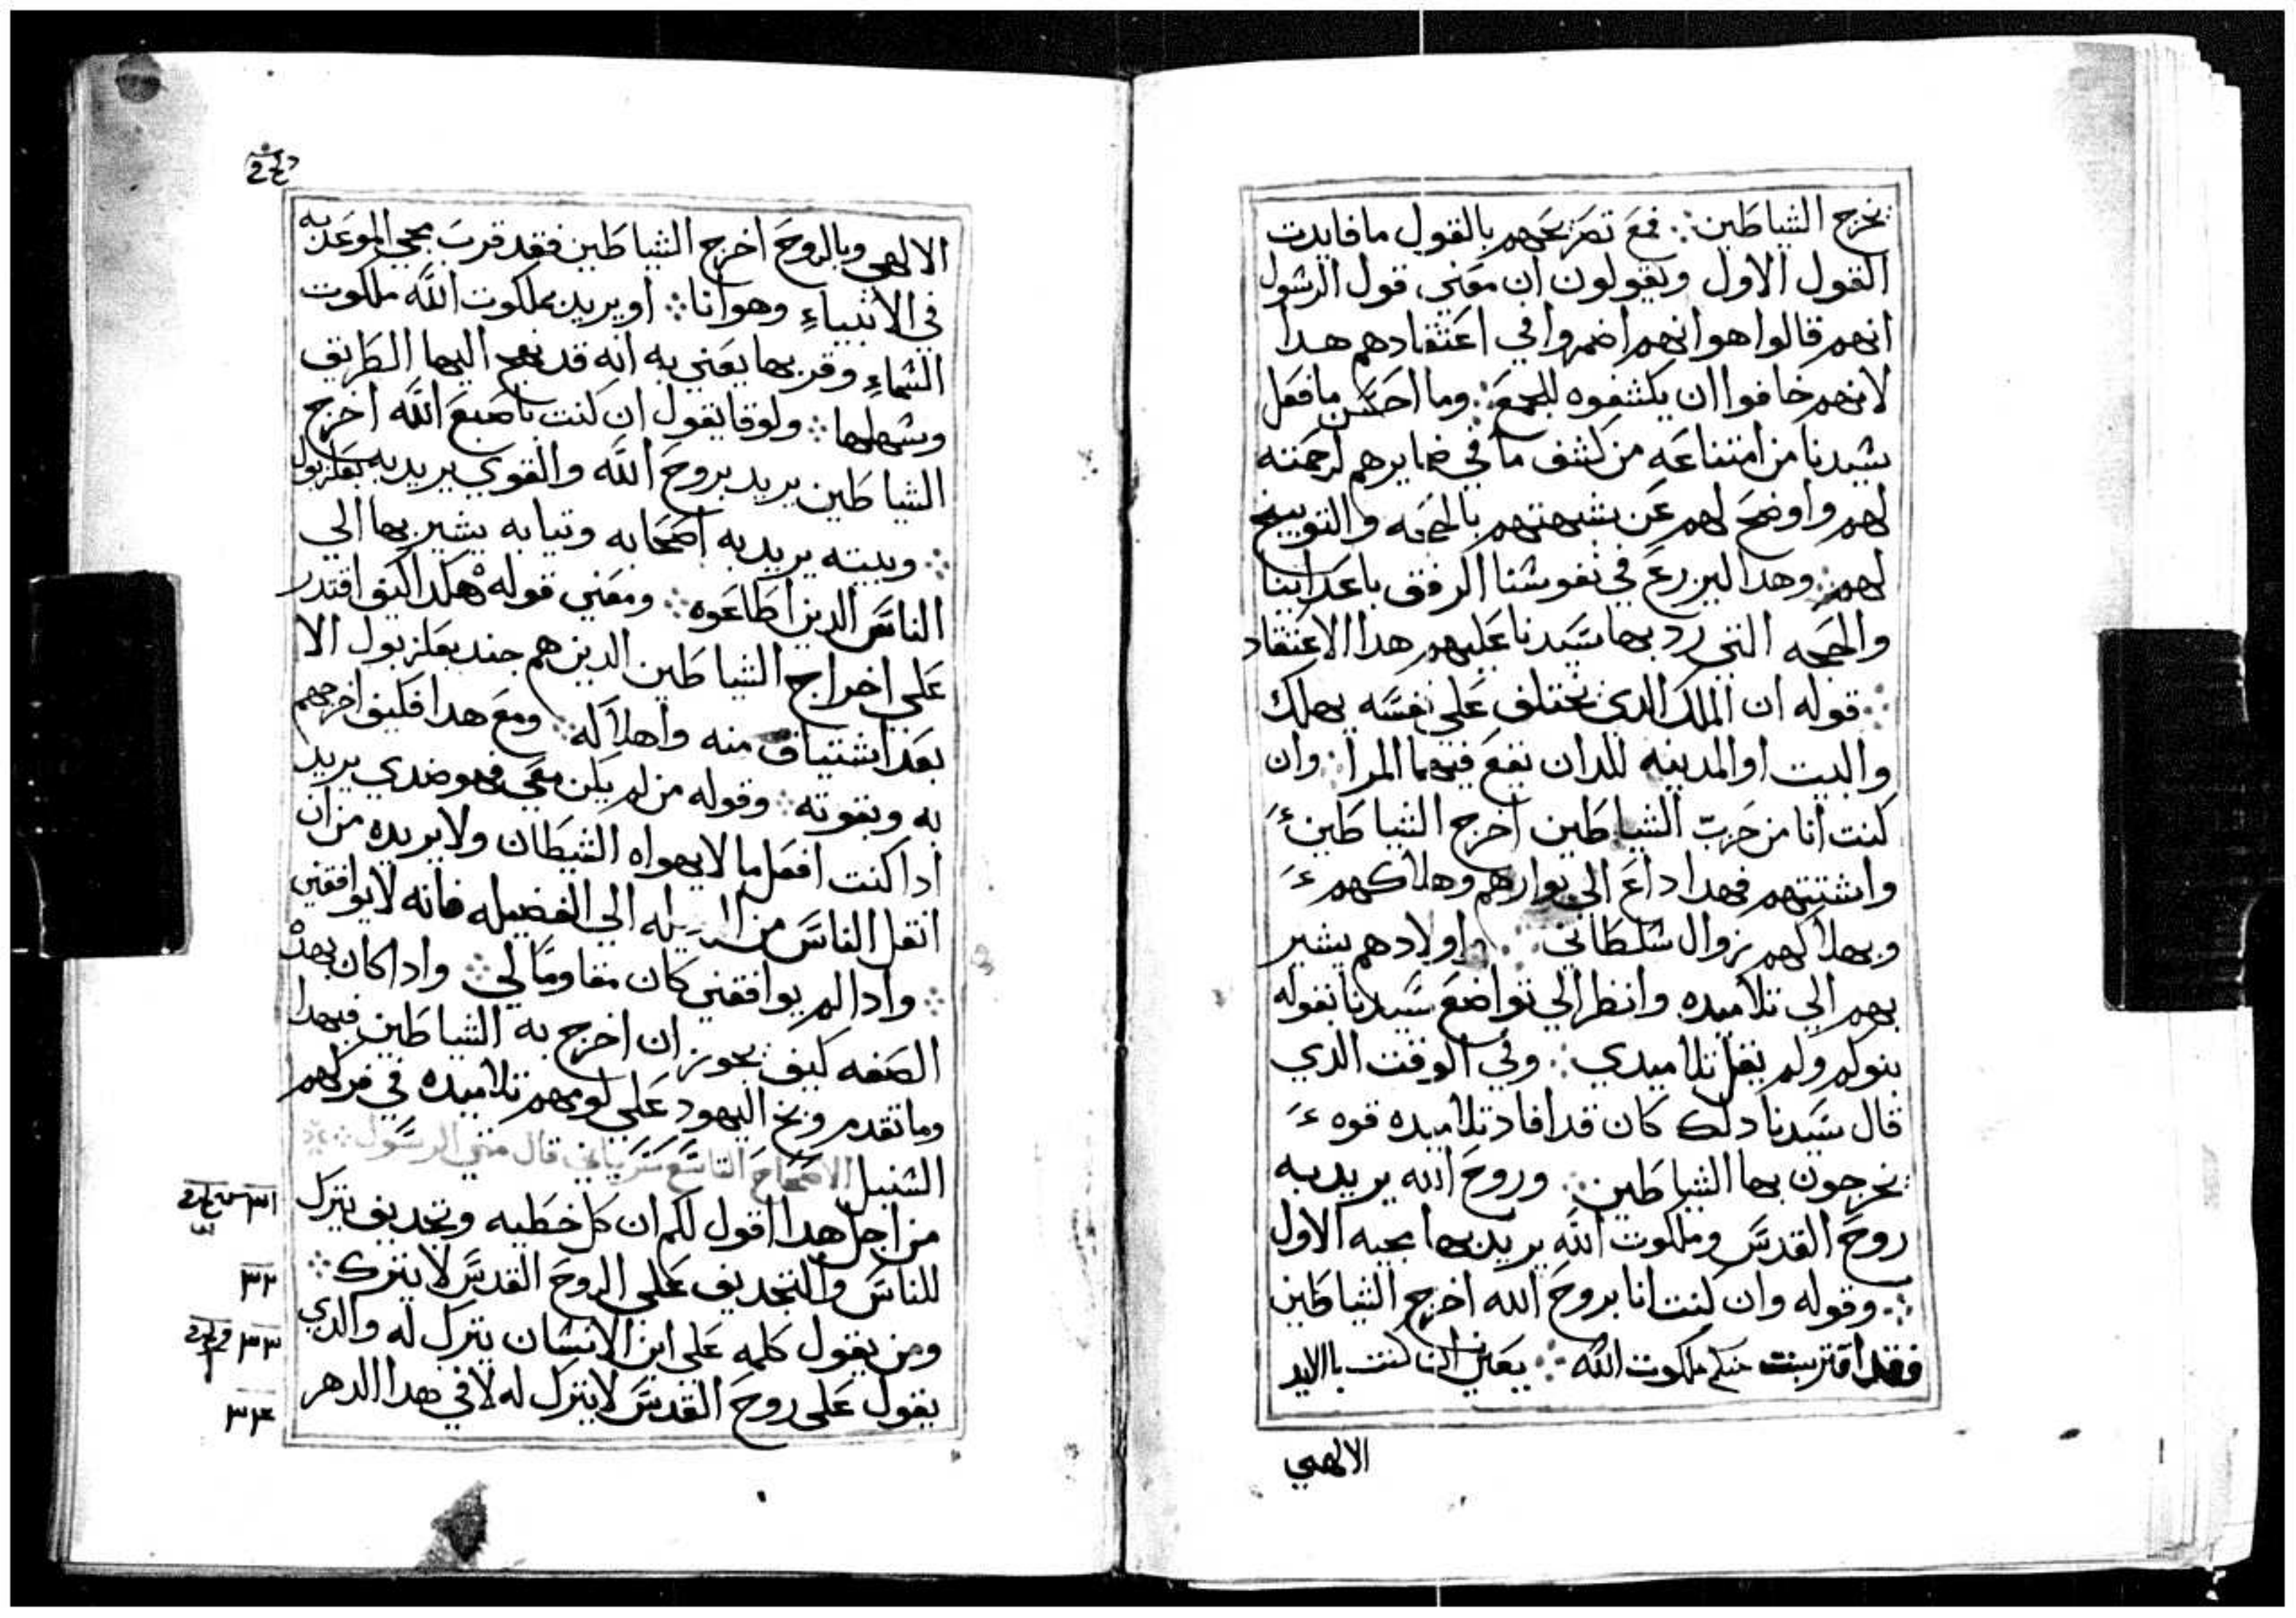 نخرج الشياطين ܀ فمع تصريحهم بالقول ما فايدت
القول الاول ويقولون ان معني قول الرسول
انهم قالوا هو انهم اضمروا في اعتقادهم هدا
لانهم خافوا ان يكشفوه للجمع ܀ وما احسن ما فعل
سيدنا من امتناعه من كشف ما في ضمايرهم لرحمته
لهم واوضح لهم عن شبهتهم بالحجه والتوبيخ
لهم ܀ وهدا ليزرع في نفوسنا الرفق باعداينا
والحجه التي رد بها سيدنا عليهم هدا الاعتقاد
܀ قوله ان الملك الدي يختلف علي نفسه يهلك
والبيت او المدينه للدان يقع فيهما المرا ܀ وان
كنت انا من حزب الشياطين اخرج الشياطين
واشتتهم فهدا داع الي بوارهم وهلاكهم
وبهلاكهم زوال سلطاني ܀ واولادهم يشير
بهم الي تلاميده وانظر الي تواضع سيدنا بقوله
بنوكم ولم يقل تلاميدي ܀ وفي الوقت الدي
قال سيدنا دلك كان قد افاد تلاميده قوه
يخرجون بها الشياطين ܀ وروح الله يريد به
روح القدس وملكوت الله يريد بها مجيه الاول
܀ وقوله وان كنت انا بروح الله اخرج الشياطين
فقد اقتربت منكم ملكوت الله ܀ يعني ان كنت بالايد
الالهي
الالهي وبالروح اخرج الشياطين فقد قرب مجي الموعد به
في الانبياء وهو انا ܀ او يريد بملكوت الله ملكوت
السماء وقربها يعني به انه قد نهج اليها الطريق
وسهلها ܀ ولوقا يقول ان كنت باصبع الله اخرج
الشياطين يريد بروح الله والقوي يريد به بعلزبول
܀ وبيته يريد به اصحابه وتيابه يشير بها الي
الناس الدين اطاعوه ܀ ومعني قوله هكدا كيف اقتدر
علي اخراج الشياطين الدين هم جند بعلزبول الا
بعد اشتياق منه واهلاكه ܀ ومع هدا فكيف اخرجهم
به وبقوته ܀ وقوله من لم يكن معي فهو ضدي يريد
ادا كنت افعل ما لا يهواه الشيطان ولا يريده من ان
انقل الناس من الي الفضيله فانه لا يوافقني
܀ وادا لم يوافقني كان مقاوما لي ܀ وادا كان بهده
الصفه كيف يجوز ان اخرج به الشياطين فبهدا
وما تقدم وبخ اليهود علي لومهم تلاميده في فركهم
السنبل الاصحاح التاسع سرياني قال متي الرسول ܀
من اجل هدا اقول لكم ان كل خطيه وتجديف يترك
للناس والتجديف علي الروح القدس لا يترك ܀
ومن يقول كلمه علي ابن الانسان يترك له والدي
يقول علي روح القدس لا يترك له لا في هدا الدهر
٣٢
٣٣
٣٤